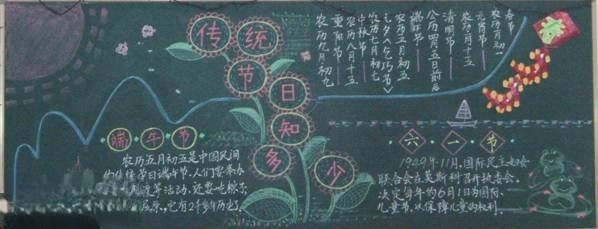 传统节日知多少
春节
农历正月初一
元宵节
农历正月十五
清明节
公历四月五日前后
端午节
农历五月初五
七夕(乞巧节)
农历七月初七
中秋节
农历八月十五
重阳节
农历九月初
端午节
农历五月初五是中国民间
的传统节日端午节,人们要举办
等活动,还要吃粽子
屈原,它有2千多年历史了。
六一节
1949年11月,国际民主妇女
联合会在莫斯科召开执委会,
决定每年的6月1日为国际
儿童节,以保障儿童的权利。